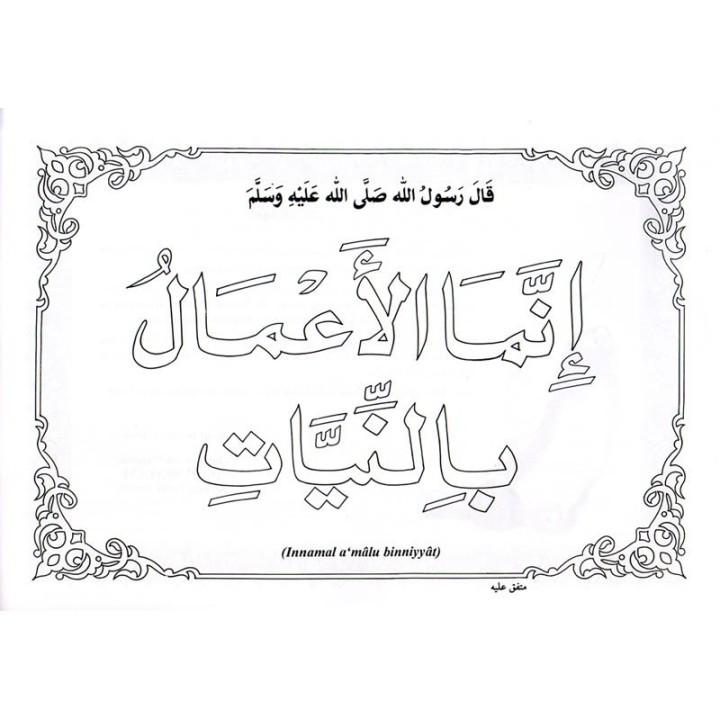 قَالَ رَسُولُ الله صَلَّى الله عَلَيْهِ وَسَلَّمَ
إِنَّمَا الأَعْمَالُ
بِالنِّيَّاتِ
(Innamal a‘mâlu binniyyât)
متفق عليه